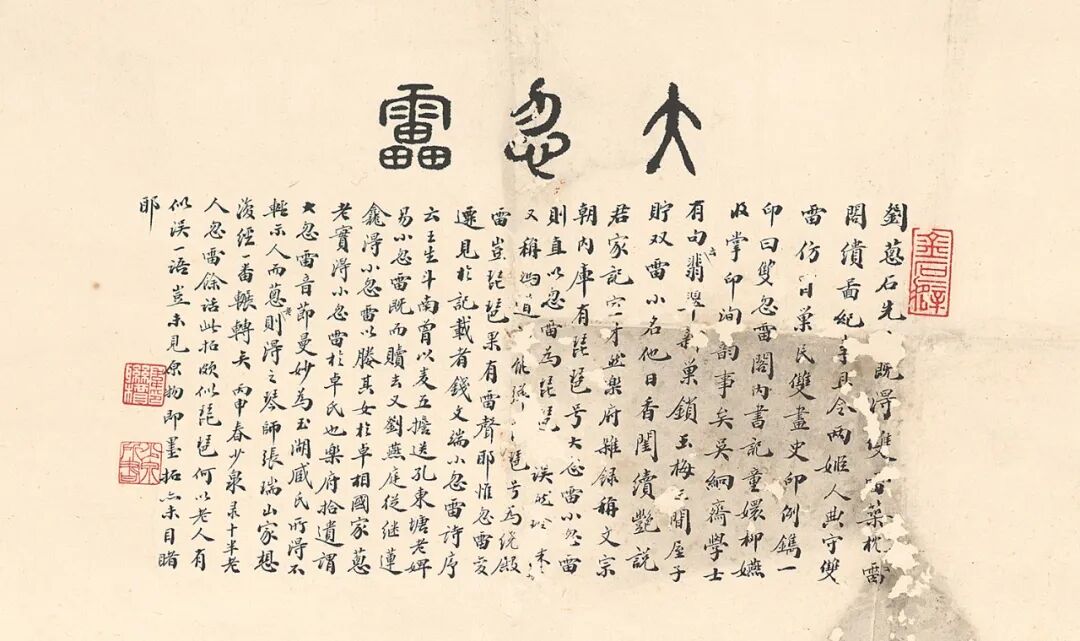 大忽雷
劉蔥石先既得雙雷築枕雷
閣繢圖紀事且令兩姬人典守雙
雷仿冒巢民雙畫史印例鐫一
印曰雙忽雷閣內書記童嬛柳嬿
收掌印洵韵事矣吳絅齋學士
有句翡翠巢鎖玉梅三間屋子
貯双雷小名他日香閨續艷說
君家記六才然樂府雜録稱文宗
朝內庫有琵琶号大忽雷小忽雷
則直以忽雷為琵琶誤
又稱馮道能琵琶号為繞殿
雷豈琵琶果有雷聲耶惟忽雷
見於記載者錢文端小忽雷詩序
云王生斗南曾以麦五擔送孔東塘老婢
易小忽雷既而贖去又劉燕庭從继蓮
龕得小忽雷以媵其女於卓相國家蔥
老實得小忽雷於卓氏也樂府拾遺謂
大忽雷音節曼妙為玉湖臧氏所得不
輕示人而蔥老則得之琴師張瑞山家想
後經一番輾轉矣丙申春少泉录十半老
人忽雷餘話此拓頗似琵琶何以老人有
似误一語豈未見原物即墨拓亦未目睹
耶
金石癖